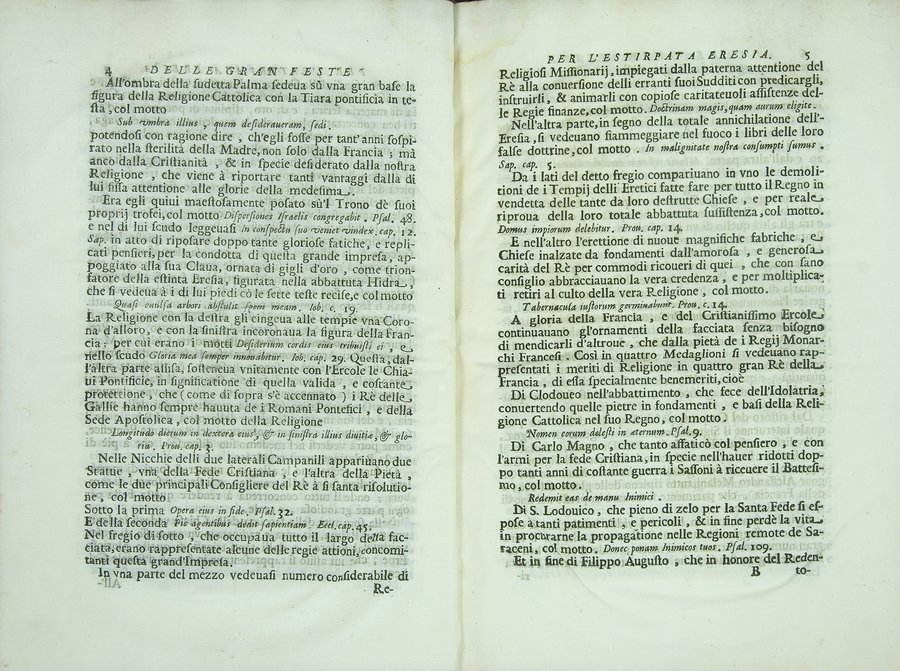 4 DELLE GRAN FESTE
All'ombra della sudetta Palma sedeua sù vna gran base la
figura della Religione Cattolica con la Tiara pontificia in te-
sta, col motto
Sub vmbra illius, quem desideraueram, sedi.
potendosi con ragione dire, ch'egli fosse per tant'anni sospi-
rato nella sterilità della Madre, non solo dalla Francia; mà
anco dalla Cristianità, & in specie desiderato dalla nostra
Religione, che viene à riportare tanti vantaggi dalla di
lui fissa attentione alle glorie della medesima.
Era egli quiui maestosamente posato sù'l Trono dè suoi
proprij trofei, col motto Dispersiones Israelis congregabit. Psal. 48.
e nel di lui scudo leggeuasi In conspectu suo veniet vindex. cap. 12.
Sap. in atto di riposare doppo tante gloriose fatiche, e repli-
cati pensieri, per la condotta di questa grande impresa, ap-
poggiato alla sua Claua, ornata di gigli d'oro, come trion-
fatore della estinta Eresia, figurata nella abbattuta Hidra,
che si vedeua à i di lui piedi cò le sette teste recise, e col motto
Quasi euulsa arbori abstulit spem meam. Iob. c. 19.
La Religione con la destra gli cingeua alle tempie vna Coro-
na d'alloro, e con la sinistra incoronaua la figura della Fran-
cia; per cui erano i motti Desiderium cordis eius tribuisti ei, e
nello scudo Gloria mea semper innouabitur. Iob. cap. 29. Questa, dal-
l'altra parte assisa, sosteneua vnitamente con l'Ercole le Chia-
ui Pontificie, in significatione di quella valida, e costante
protettione, che (come di sopra s'è accennato) i Rè delle
Gallie hanno sempre hauuta de i Romani Pontefici, e della
Sede Apostolica, col motto della Religione
Longitudo dierum in dextera eius, & in sinistra illius diuitiæ, & glo-
ria, Prou. cap. 3.
Nelle Nicchie delli due laterali Campanili appariuano due
Statue, vna della Fede Cristiana, e l'altra della Pietà,
come le due principali Consigliere del Rè à sì santa risolutio-
ne, col motto
Sotto la prima Opera eius in fide. Psal. 32.
E della seconda Piè agentibus dedit sapientiam. Eccl. cap. 45.
Nel fregio di sotto, che occupaua tutto il largo della fac-
ciata, erano rappresentate alcune delle regie attioni, concomi-
tanti questa grand'Impresa.
In vna parte del mezzo vedeuasi numero considerabile di
Re-
PER L'ESTIRPATA ERESIA. 5
Religiosi Missionarij, impiegati dalla paterna attentione del
Rè alla conuersione delli erranti suoi Sudditi con predicargli,
instruirli, & animarli con copiose caritateuoli assistenze del-
le Regie finanze, col motto. Doctrinam magis, quam aurum eligite.
Nell'altra parte, in segno della totale annichilatione dell'-
Eresia, si vedeuano fiammeggiare nel fuoco i libri delle loro
false dottrine, col motto. In malignitate nostra consumpti sumus.
Sap. cap. 5.
Da i lati del detto fregio compariuano in vno le demoli-
tioni de i Tempij delli Eretici fatte fare per tutto il Regno in
vendetta delle tante da loro destrutte Chiese, e per reale
riproua della loro totale abbattuta sussistenza, col motto.
Domus impiorum delebitur. Prou. cap. 14.
E nell'altro l'erettione di nuoue magnifiche fabriche, e
Chiese inalzate da fondamenti dall'amorosa, e generosa
carità del Rè per commodi ricoueri di quei, che con sano
consiglio abbracciauano la vera credenza, e per moltiplica-
ti retiri al culto della vera Religione, col motto.
Tabernacula iustorum germinabunt. Prou. c. 14.
A gloria della Francia, e del Cristianissimo Ercole
continuauano gl'ornamenti della facciata senza bisogno
di mendicarli d'altroue, che dalla pietà de i Regij Monar-
chi Francesi. Così in quattro Medaglioni si vedeuano rap-
presentati i meriti di Religione in quattro gran Rè della
Francia, di essa specialmente benemeriti, cioè
Di Clodoueo nell'abbattimento, che fece dell'Idolatria,
conuertendo quelle pietre in fondamenti, e basi della Reli-
gione Cattolica nel suo Regno, col motto.
Nomen eorum delesti in æternum. Psal. 9.
Di Carlo Magno, che tanto affaticò col pensiero, e con
l'armi per la fede Cristiana, in specie nell'hauer ridotti dopo
tanti anni di costante guerra i Sassoni à riceuere il Battesi-
mo, col motto.
Redemit eas de manu Inimici.
Di S. Lodouico, che pieno di zelo per la Santa Fede si es-
pose à tanti patimenti, e pericoli, & in fine perdè la vita
in procurarne la propagatione nelle Regioni remote de Sa-
raceni, col motto. Donec ponam Inimicos tuos. Psal. 109.
Et in fine di Filippo Augusto, che in honore del Reden-
B to-